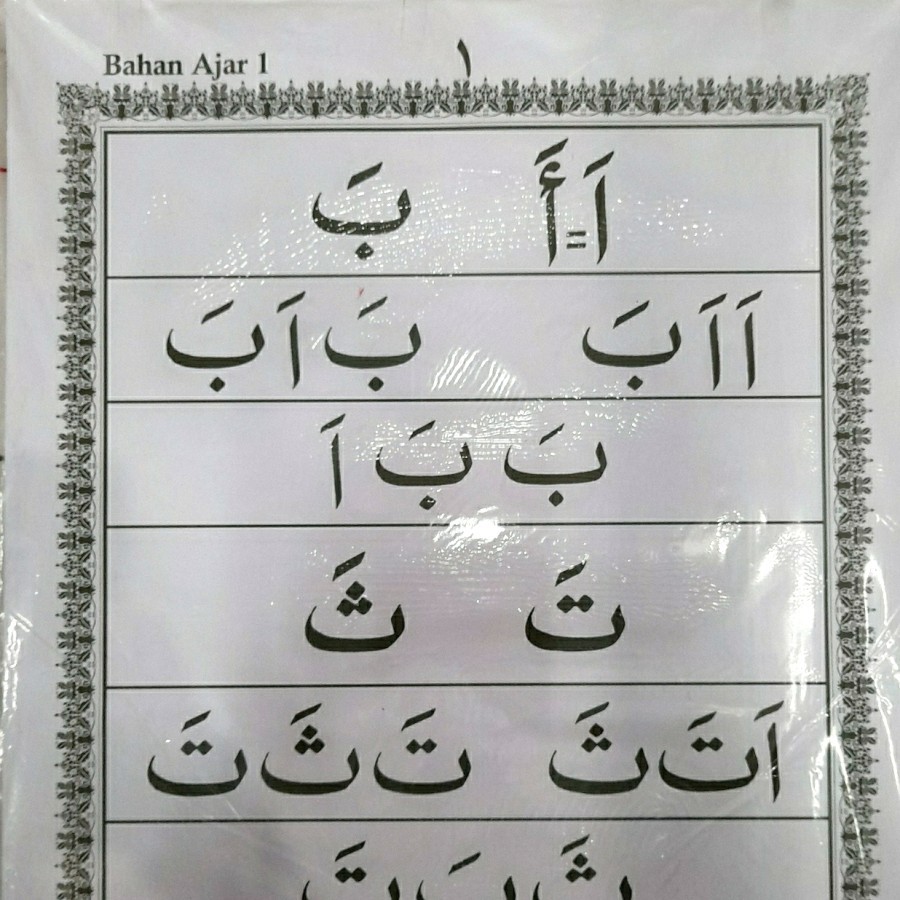 Bahan Ajر 1 ١
اَ = أَ بَ
اَ اَ بَ بَ اَ بَ
بَ بَ اَ
تَ ثَ
اَ تَ ثَ تَ ثَ تَ